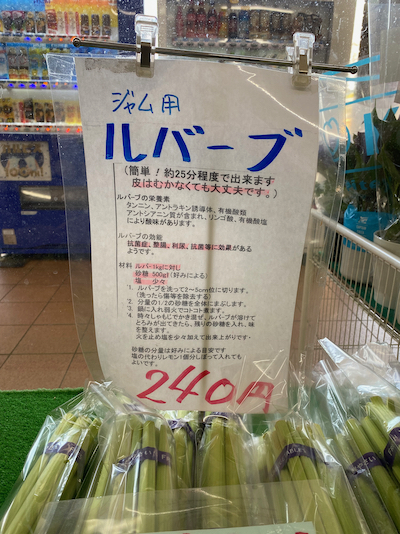 ジャム用
ルバーブ
(簡単！約25分程度で出来ます
皮はむかなくても大丈夫です。)
ルバーブの栄養素
タンニン、アントラキン誘導体、有機酸類
アントシアニン質が含まれ、リンゴ酸、有機酸塩
により酸味があります。
ルバーブの効能
抗菌症、整腸、利尿、抗菌等に効果がある
ようです。
材料 ルバーブ1kgに対し
砂糖 500g(好みによる)
塩 少々
1. ルバーブを洗って2~5cm位に切ります。
(洗ったら傷等を除去する)
2. 分量の1/2の砂糖を全体にまぶします。
3. 鍋に入れ弱火でコトコト煮ます。
4. 時々しゃもじでかき混ぜ、ルバーブが溶けて
とろみが出てきたら、残りの砂糖を入れ、味
を整えます。
火を止め塩を少々加えて出来上がりです。
砂糖の分量は好みによる目安です
塩の代わりレモン1個分しぼって入れても
よいです。
240円